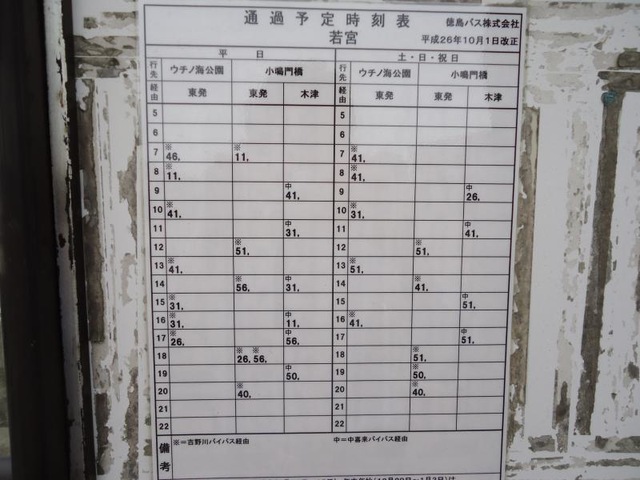 通過予定時刻表 徳島バス株式会社
若宮 平成26年10月1日改正
平 日 土・日・祝日
行先 ウチノ海公園 小鳴門橋 行先 ウチノ海公園 小鳴門橋
経由 東発 東発 木津 経由 東発 東発 木津
5 5
6 6
7 ※46, ※11, 7 ※41,
8 ※11, 8 ※41,
9 中41, 9 中26,
10 ※41, 10 ※31,
11 中31, 11 中41,
12 ※51, 12 ※51,
13 ※41, 13 ※51,
14 ※56, 中31, 14 ※41,
15 ※31, 15 中51,
16 ※31, 中11, 16 ※41,
17 ※26, 中56, 17 中51,
18 ※26, ※56, 18 ※51,
19 中50, 19 ※50,
20 ※40, 20 ※40,
21 21
22 22
備考 ※=吉野川バイパス経由 中=中喜来バイパス経由